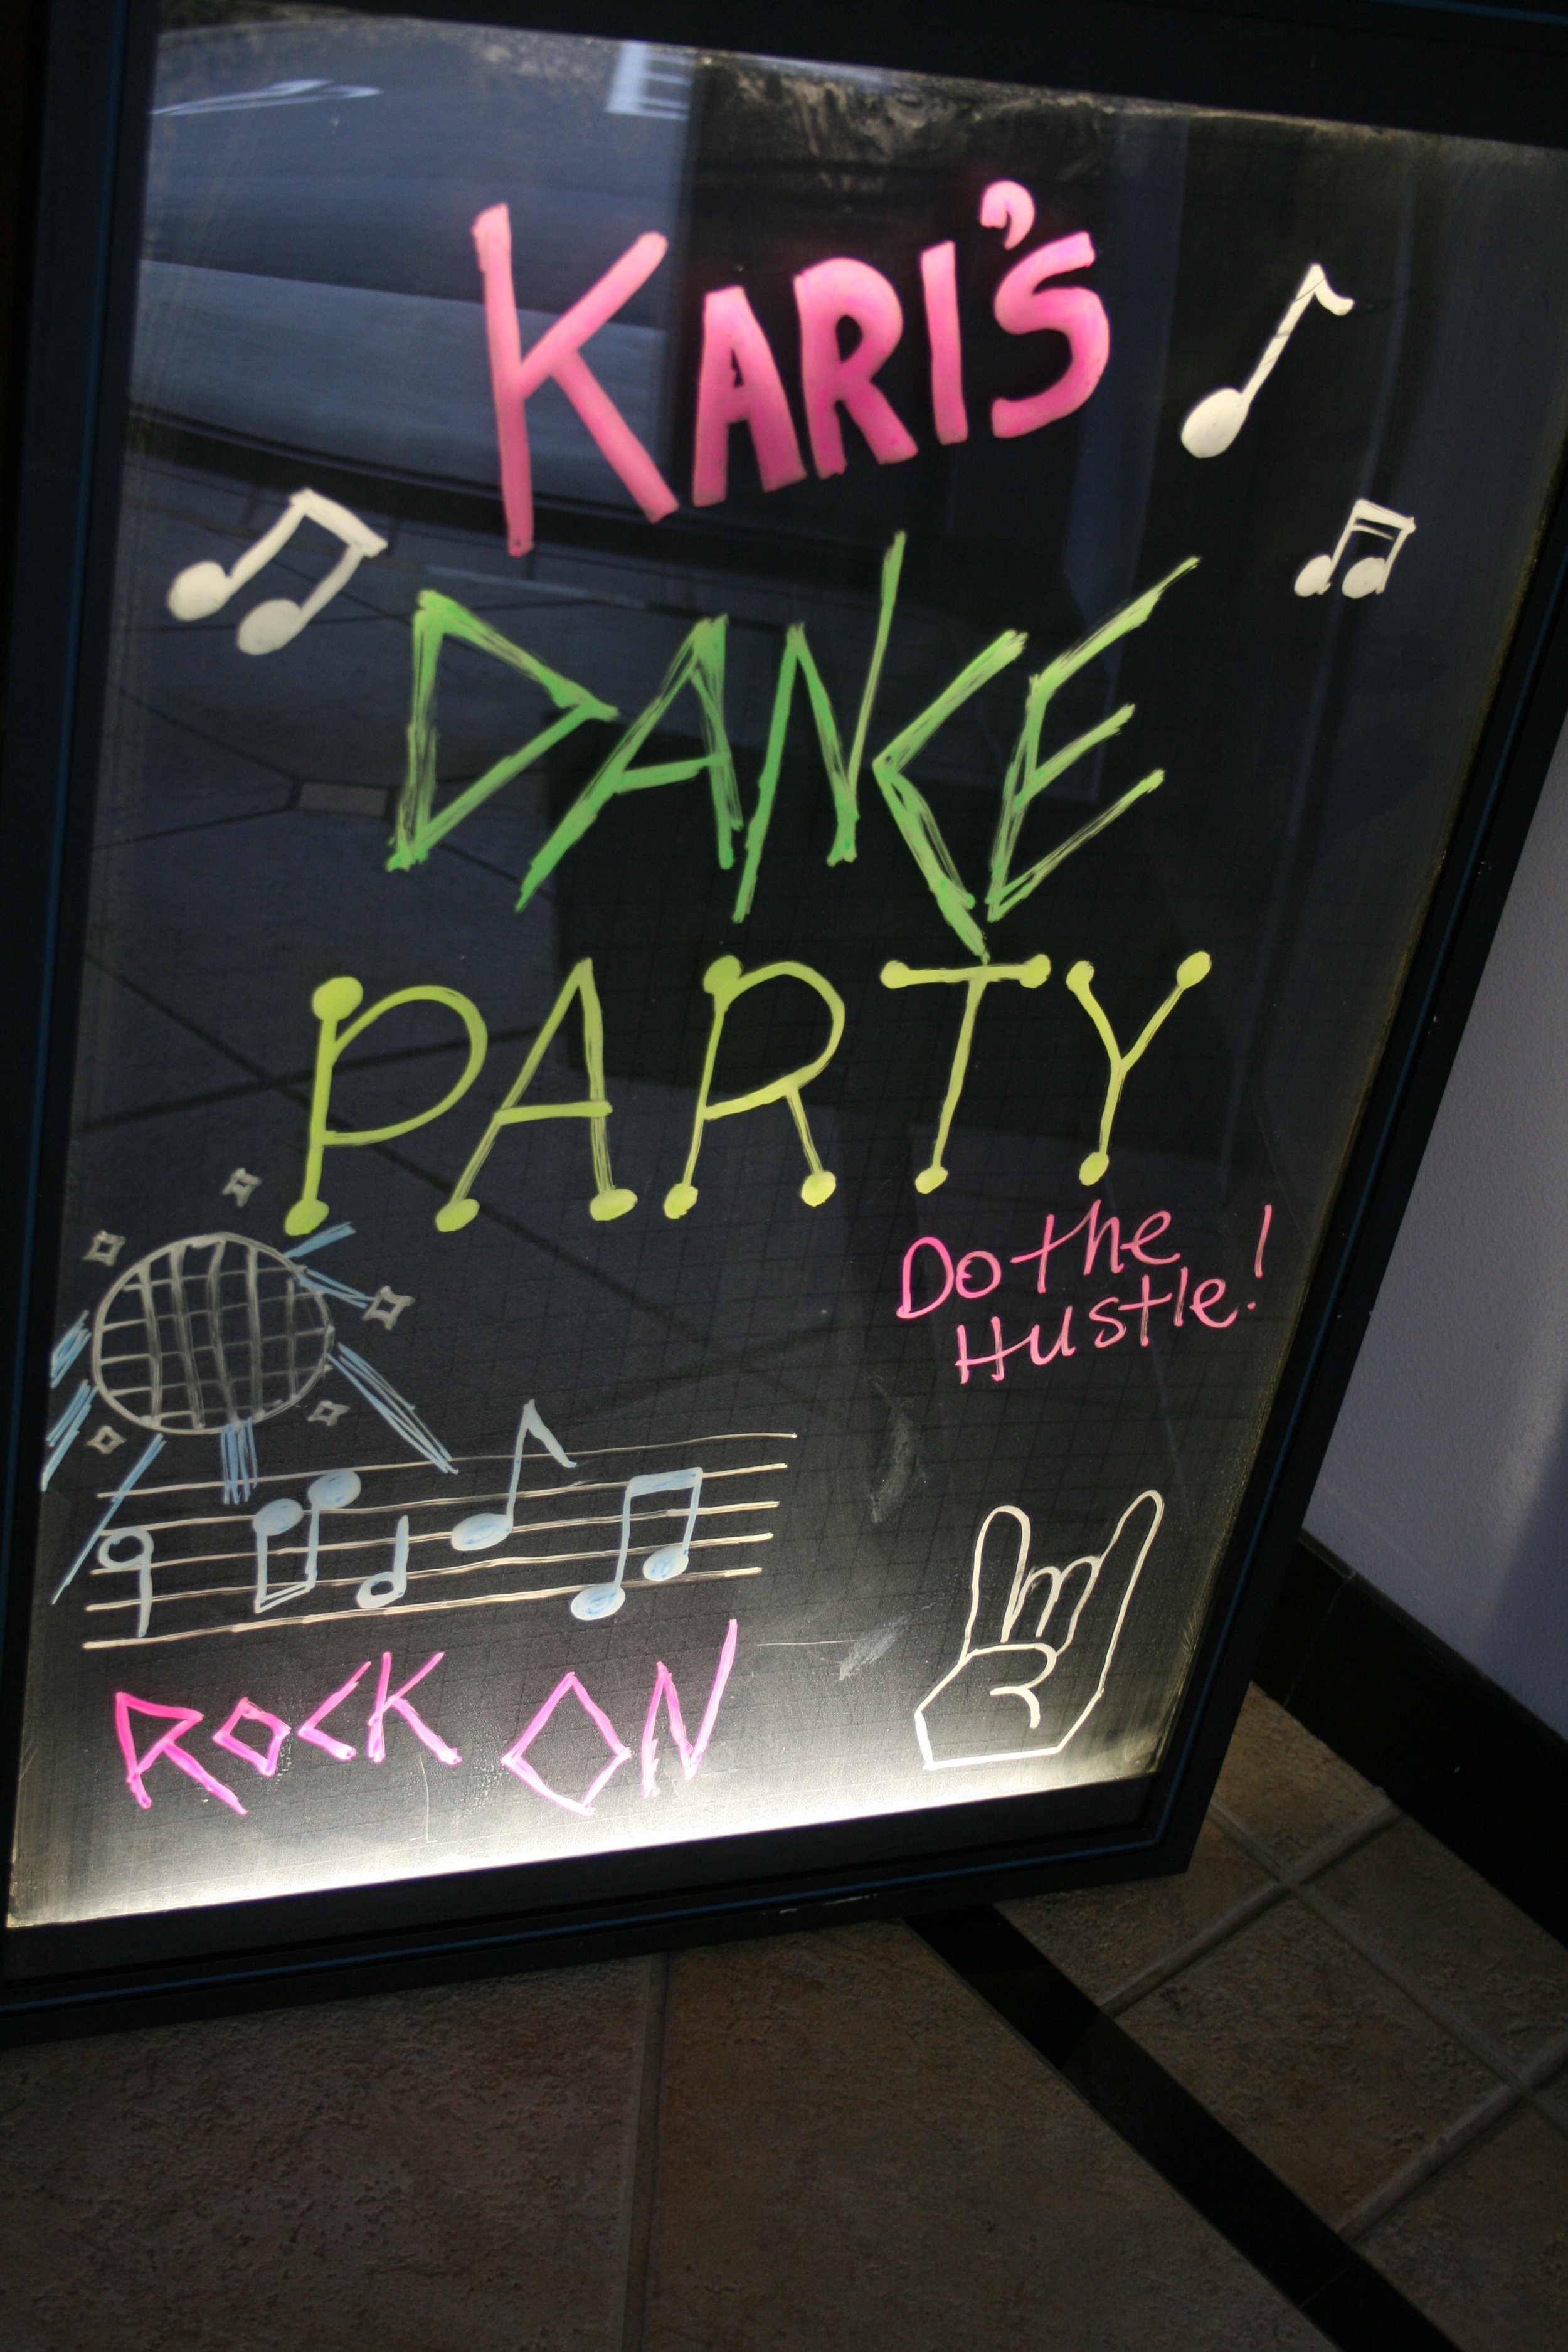 KARI'S
DANCE
PARTY
Do the
Hustle!
ROCK ON